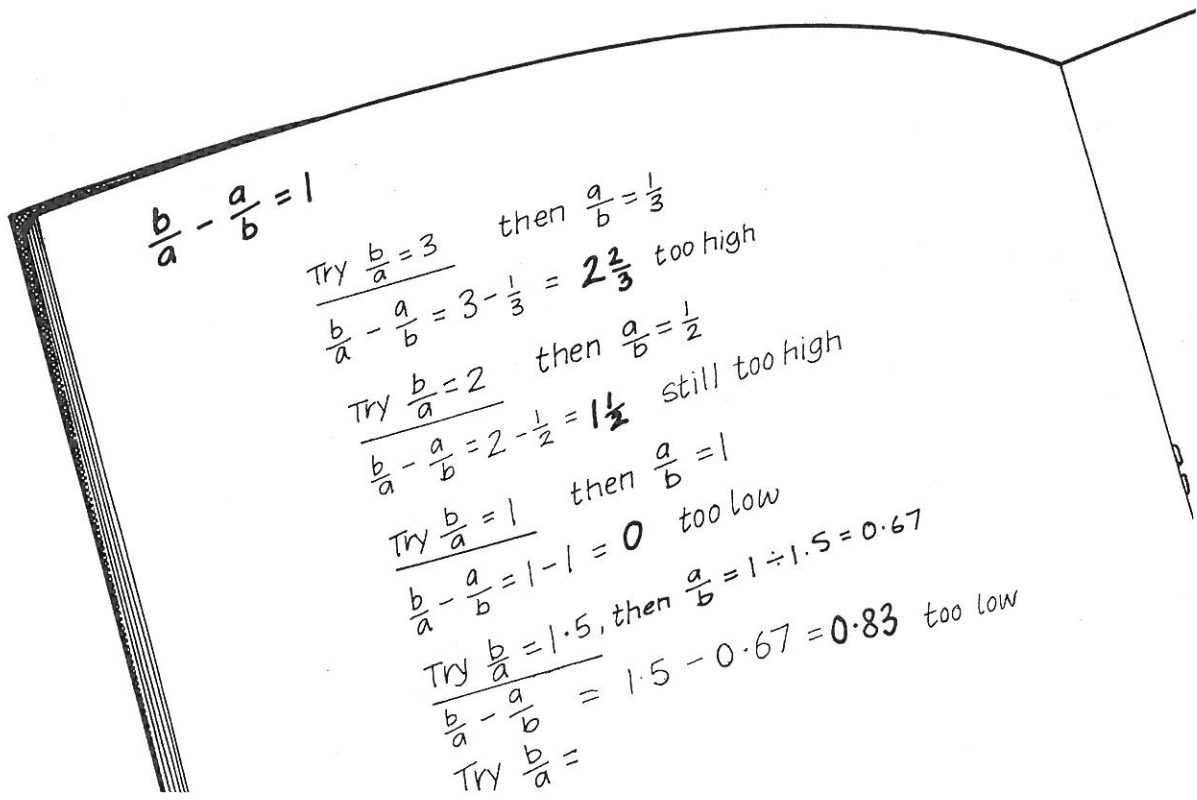 b/a - a/b = 1
Try b/a = 3 then a/b = 1/3
b/a - a/b = 3 - 1/3 = 2 2/3 too high
Try b/a = 2 then a/b = 1/2
b/a - a/b = 2 - 1/2 = 1 1/2 still too high
Try b/a = 1 then a/b = 1
b/a - a/b = 1 - 1 = 0 too low
Try b/a = 1·5, then a/b = 1 ÷ 1.5 = 0·67
b/a - a/b = 1·5 - 0·67 = 0·83 too low
Try b/a =